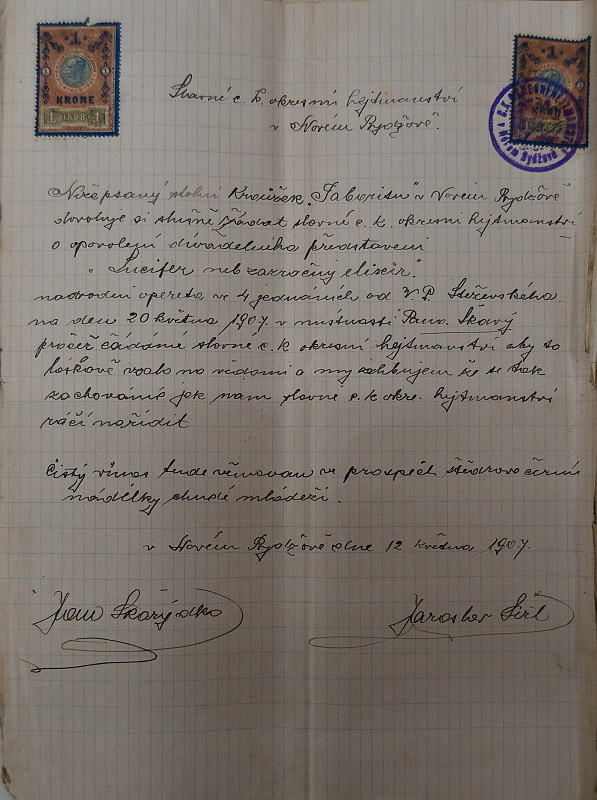 1
KRONE
1 1898 1
1
KRON
Slavné c. k. okresní hejtmanství
v Novém Bydžově.
Nížepsaný stolní Kroužek "Táboritů" v Novém Bydžově
dovoluje si slušně žádat slovné c. k. okresní hejtmanství
o opovolení divadelního představení
"Lucifer neb zazračný elixír."
národní opereta ve 4 jednáních od
na den 20 května 1907 v místnosti Pana. Skavý
pročež žádáme slovne c. k okresní hejtmanství aby to
láskavě vzalo na vědomí a my zahbujem že se tak
zachováme jak nám slavne c. k okre. hejtmanství
ráčí nařídit
Čistý výnos bude věnován ve prospěch štědrovečerní
nádílky chudé mládeži.
v Novém Bydžově dne 12 května 1907.
Jaroslav